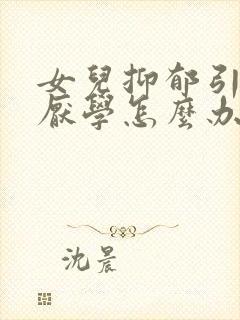 女兒抑郁引
厭學怎麼办
沈晨